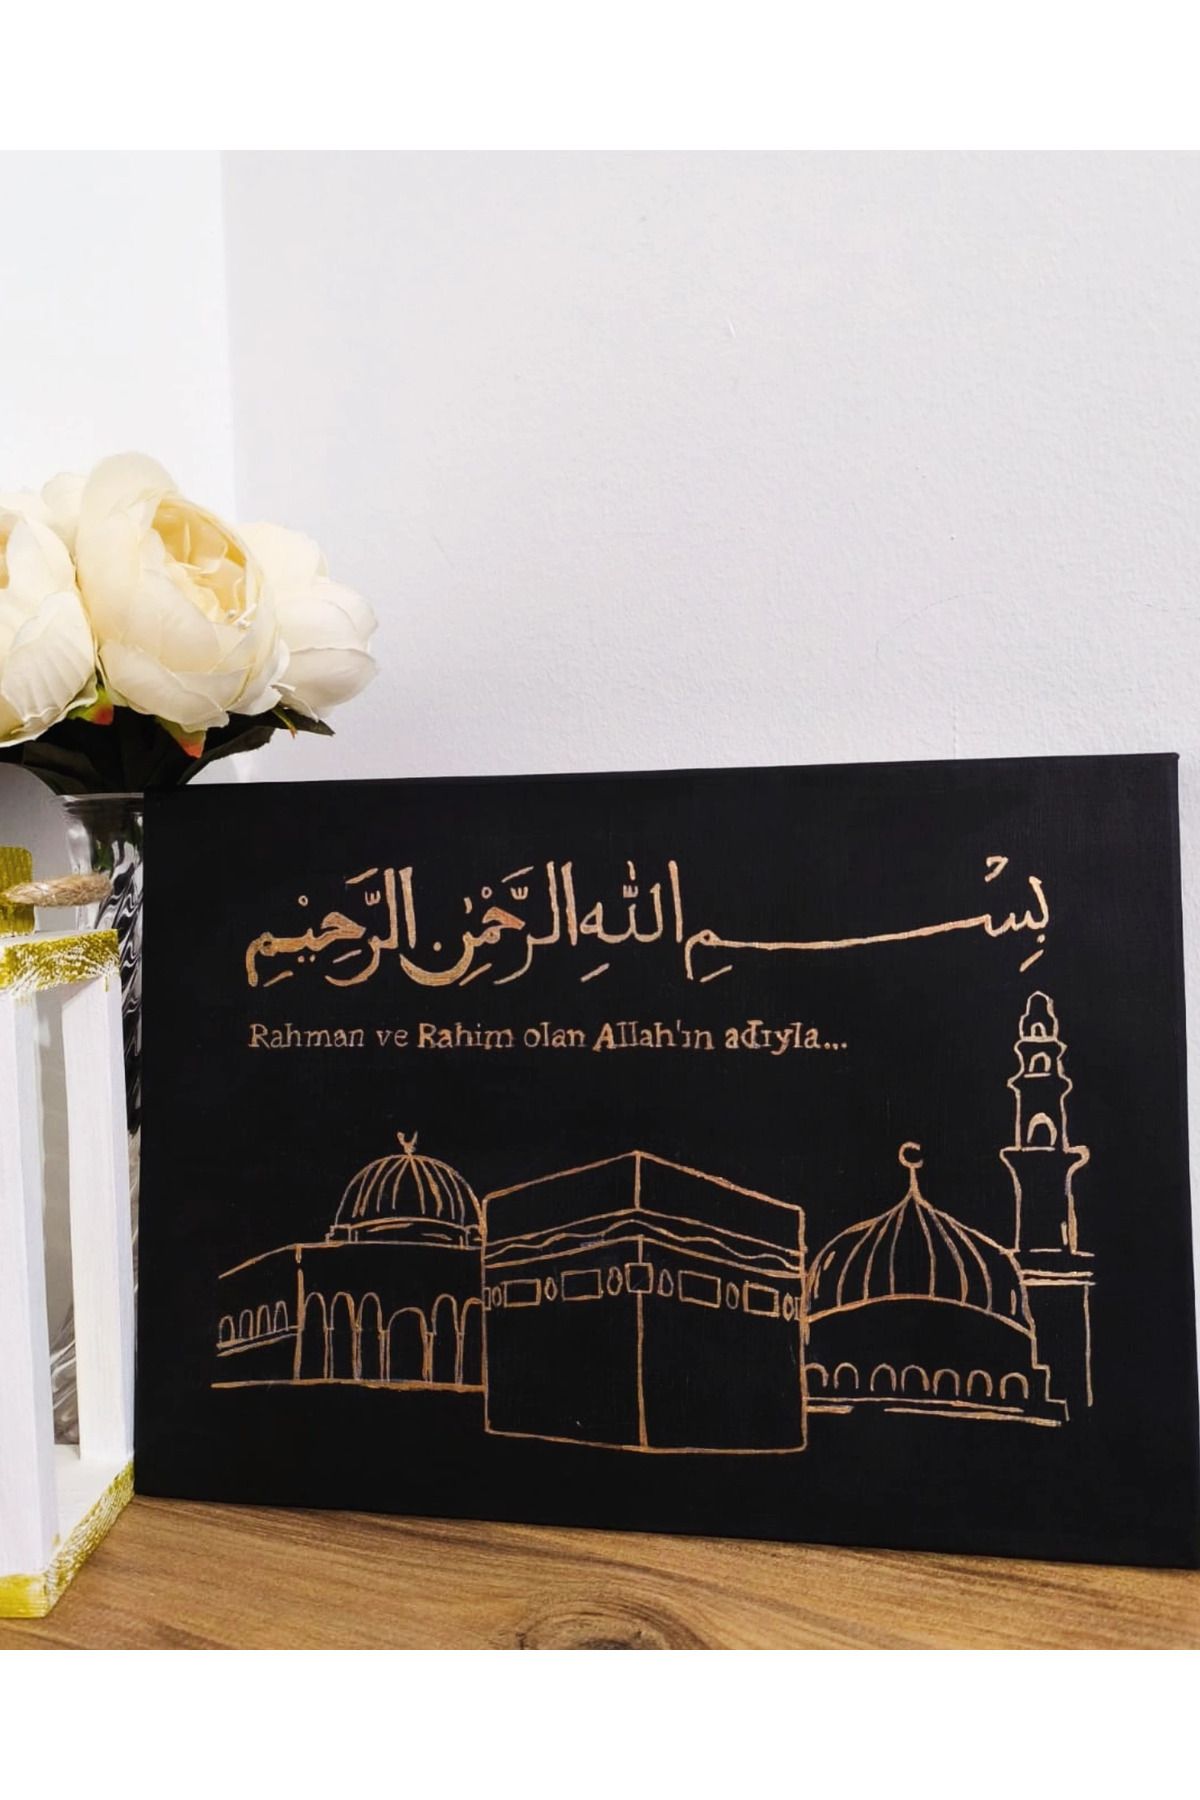 بِسْمِ اللّٰهِ الرَّحْمٰنِ الرَّحِيْمِ
Rahman ve Rahim olan Allah'ın adıyla...